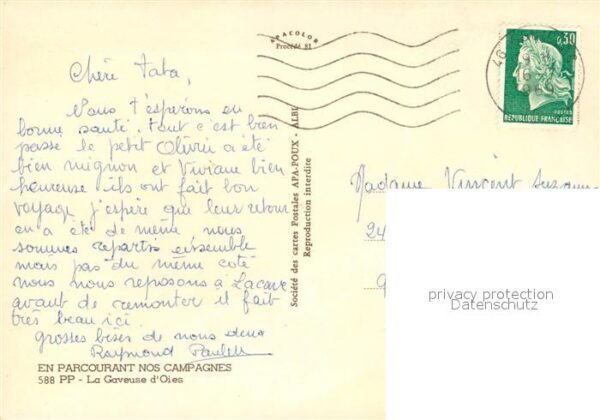 APACOLOR
Procédé 81
0,30
POSTES
REPUBLIQUE FRANÇAISE
46
Chère Tata,
Nous t'espérons en
bonne santé, tout c'est bien
passé le petit Olivier a été
bien mignon et Viviane bien
heureuse ils ont fait bon
voyage j'espère que leur retour
en a été de même nous
sommes repartis ensemble
mais pas du même coté
nous nous reposons à Lacave
avant de remonter il fait
très beau ici.
grosses bises de nous deux
Raymond Paulette
EN PARCOURANT NOS CAMPAGNES
588 PP - La Gaveuse d'Oies
Société des cartes Postales APA-POUX - ALBI
Reproduction interdite
Madame Vincent Suzanne
24
privacy protection
Datenschutz